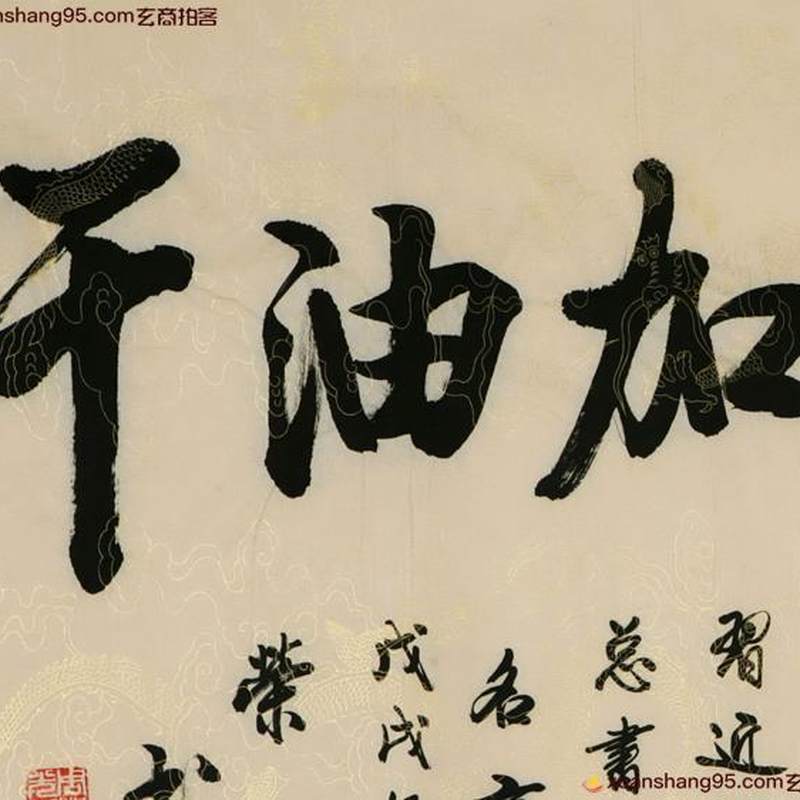 nshang95.com玄商拍客
加油干
習近
总書
名
戊戌
榮
xuanshang95.com玄